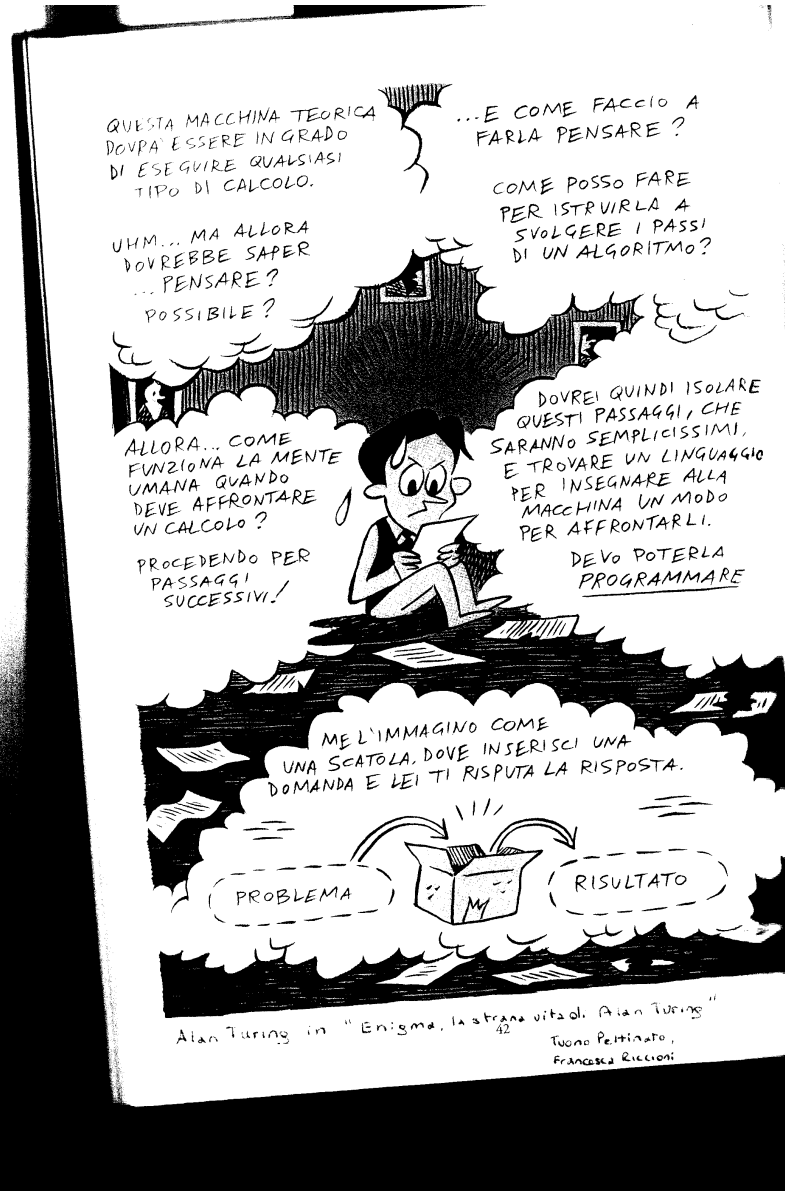 QUESTA MACCHINA TEORICA
DOVRA' ESSERE IN GRADO
DI ESEGUIRE QUALSIASI
TIPO DI CALCOLO.
UHM... MA ALLORA
DOVREBBE SAPER
...PENSARE?
POSSIBILE?
...E COME FACCIO A
FARLA PENSARE?
COME POSSO FARE
PER ISTRUIRLA A
SVOLGERE I PASSI
DI UN ALGORITMO?
ALLORA... COME
FUNZIONA LA MENTE
UMANA QUANDO
DEVE AFFRONTARE
UN CALCOLO?
PROCEDENDO PER
PASSAGGI
SUCCESSIVI!
DOVREI QUINDI ISOLARE
QUESTI PASSAGGI, CHE
SARANNO SEMPLICISSIMI,
E TROVARE UN LINGUAGGIO
PER INSEGNARE ALLA
MACCHINA UN MODO
PER AFFRONTARLI.
DEVO POTERLA
PROGRAMMARE
ME L'IMMAGINO COME
UNA SCATOLA, DOVE INSERISCI UNA
DOMANDA E LEI TI RISPUTA LA RISPOSTA.
PROBLEMA
RISULTATO
Alan Turing in "Enigma, la strana vita di Alan Turing"
42
Tuono Pettinato,
Francesca Riccioni